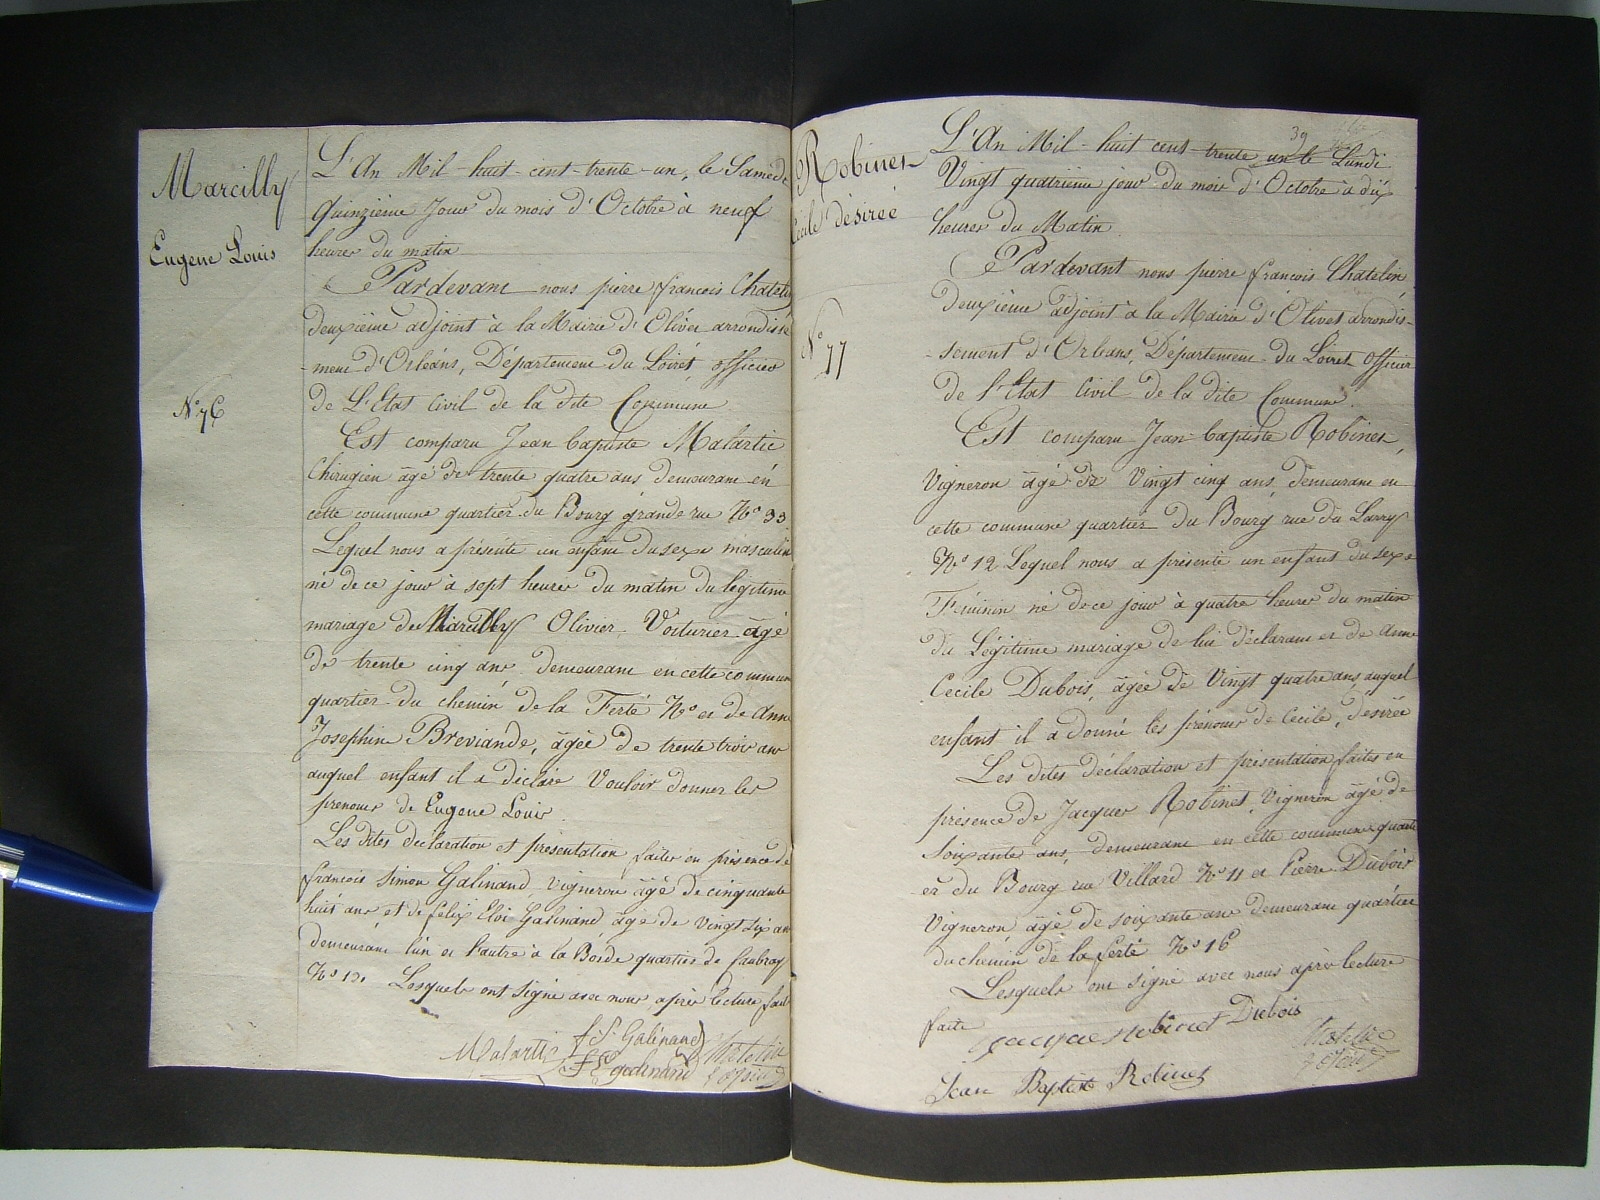 Marcilly
Eugene Louis
N° 76
L'An Mil-huit-cent-trente-un, le Samedi
Quinzieme Jour du mois d'Octobre à neuf
heures du matin
Pardevant nous pierre francois Chatelin
deuxième adjoint à la Mairie d'Olivet arrondisse
-ment d'Orléans, Département du Loiret, officier
de L'Etat Civil de la dite Commune
Est comparu Jean baptiste Malartic
Chirugien âgé de trente quatre ans demeurant en
cette commune quartier du Bourg grande rue N° 33
Lequel nous a présenté un enfant du sexe masculin
né de ce jour à sept heures du matin du legitime
mariage de Marcilly Olivier Voiturier âgé
de trente cinq ans demeurant en cette commune
quartier du chemin de la Ferté N° et de Anne
Josephine Breviande, âgée de trente trois ans
auquel enfant il a déclaré Vouloir donner les
prenoms de Eugene Louis
Les dites déclaration et présentation faites en présence de
francois Simon Galinand vigneron âgé de cinquante
huit ans et de felix Eloi Galinand, âgé de Vingt six ans
demeurant l'un et l'autre à la Borde quartier de
N° Lesquels ont signé avec nous après lecture faite
Malartic f. S. Galinand
f E galinand
Robinet
Cecile désirée
N° 77
39
L'An Mil-huit cent trente un le Lundi
Vingt quatrieme jour du mois d'Octobre à dix
heures du Matin
Pardevant nous pierre francois Chatelin
deuxième adjoint à la Mairie d'Olivet arrondis-
-sement d'Orleans, Département du Loiret officier
de l'Etat Civil de la dite Commune.
Est comparu Jean baptiste Robinet,
Vigneron âgé de Vingt cinq ans, demeurant en
cette commune quartier du Bourg rue du
N° 12 Lequel nous a présenté un enfant du sexe
Féminin né de ce jour à quatre heures du matin
du Légitime mariage de lui déclarant et de Anne
Cecile Dubois, âgée de Vingt quatre ans, auquel
enfant il a donné les prénoms de Cecile, désirée
Les dites déclaration et présentation faites en
présence de Jacques Robinet, Vigneron âgé de
Soixante ans, demeurant en cette commune quarti
er du Bourg rue Villard N° 11 et Pierre Dubois
Vigneron âgé de soixante ans demeurant quartier
du chemin de la ferté N° 16
Lesquels ont signé avec nous après lecture
faite
Jacque robinet Dubois
Jean Baptiste Robinet